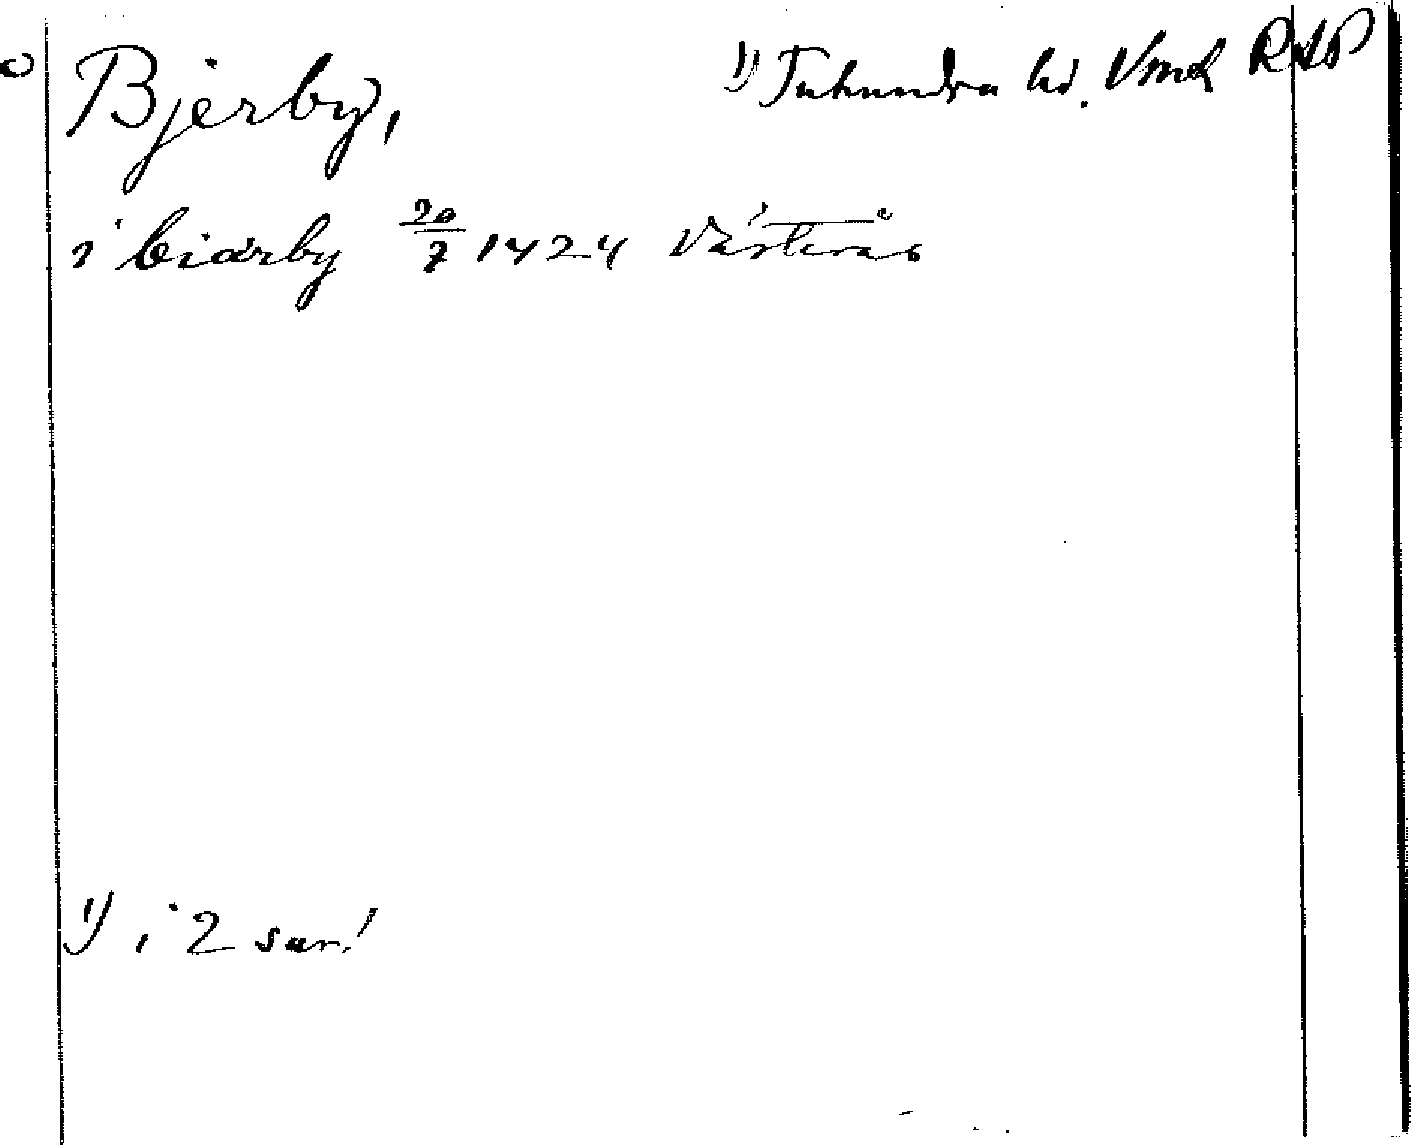 Bjerby, 1) Tuhundra hd. Vml RAP
i biærby 20/7 1424 Västerås
1) i 2 snr!